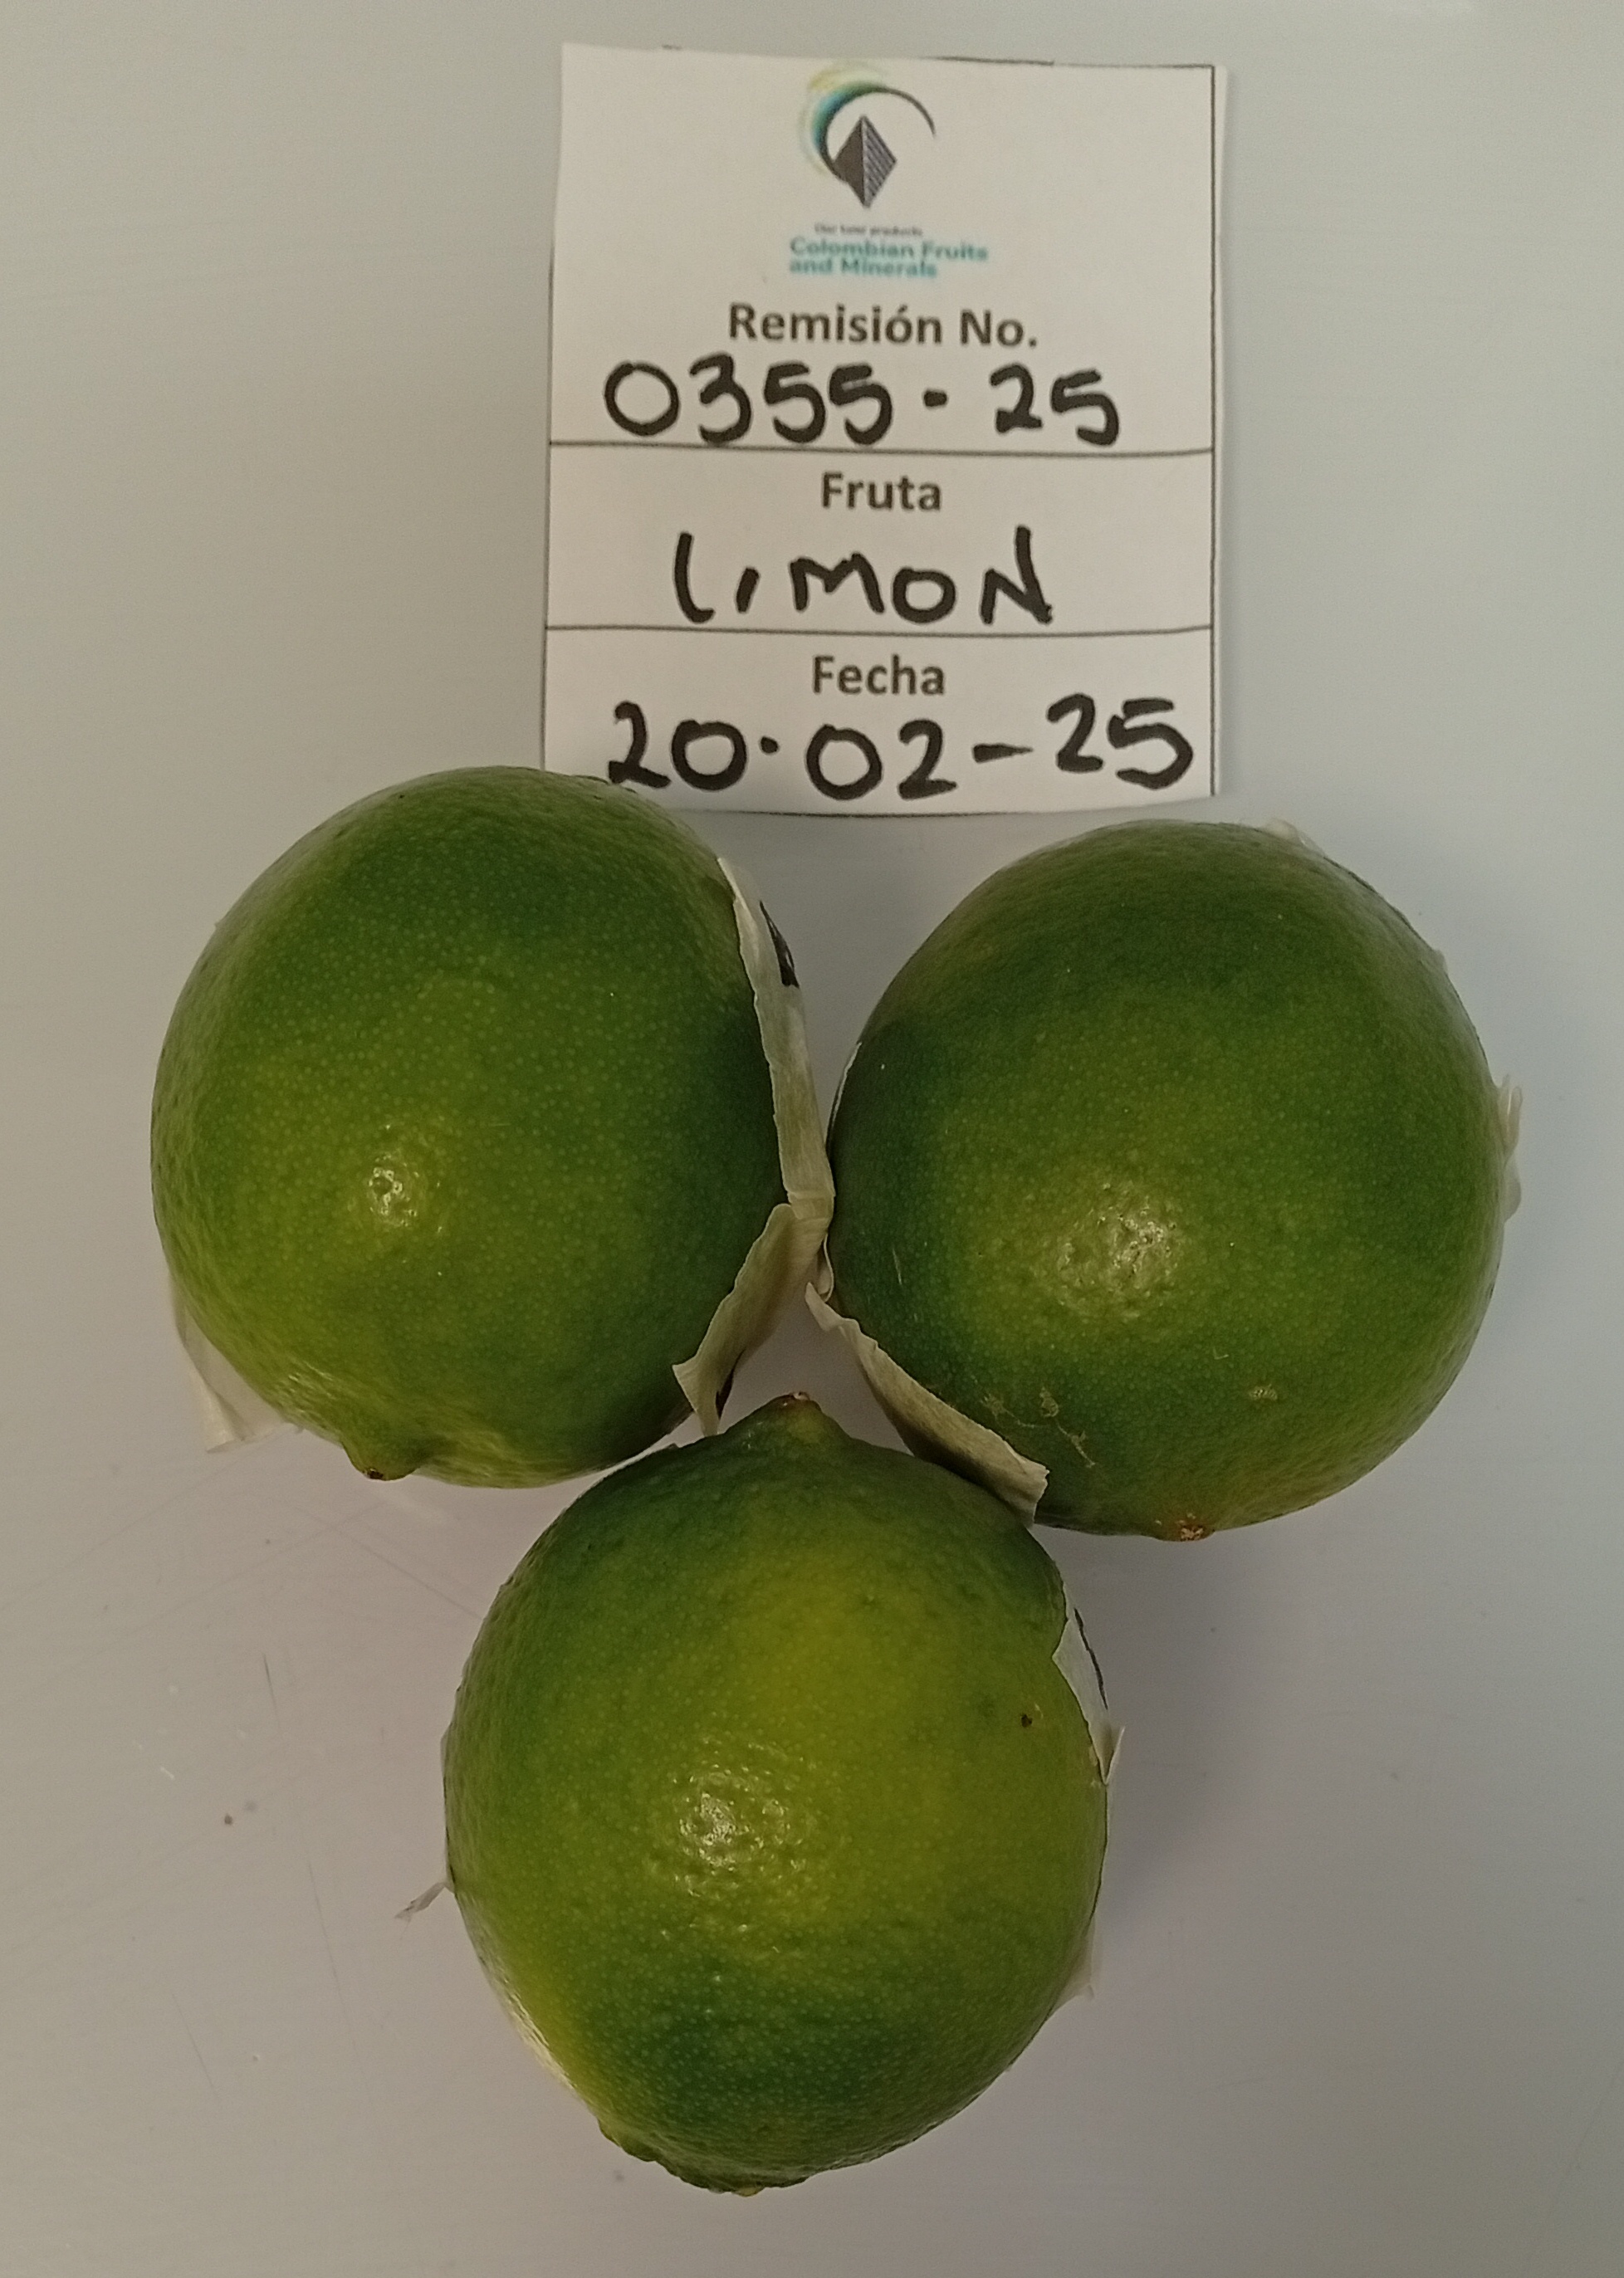 Colombian Fruits
and Minerals
Remisión No.
0355-25
Fruta
LIMON
Fecha
20-02-25